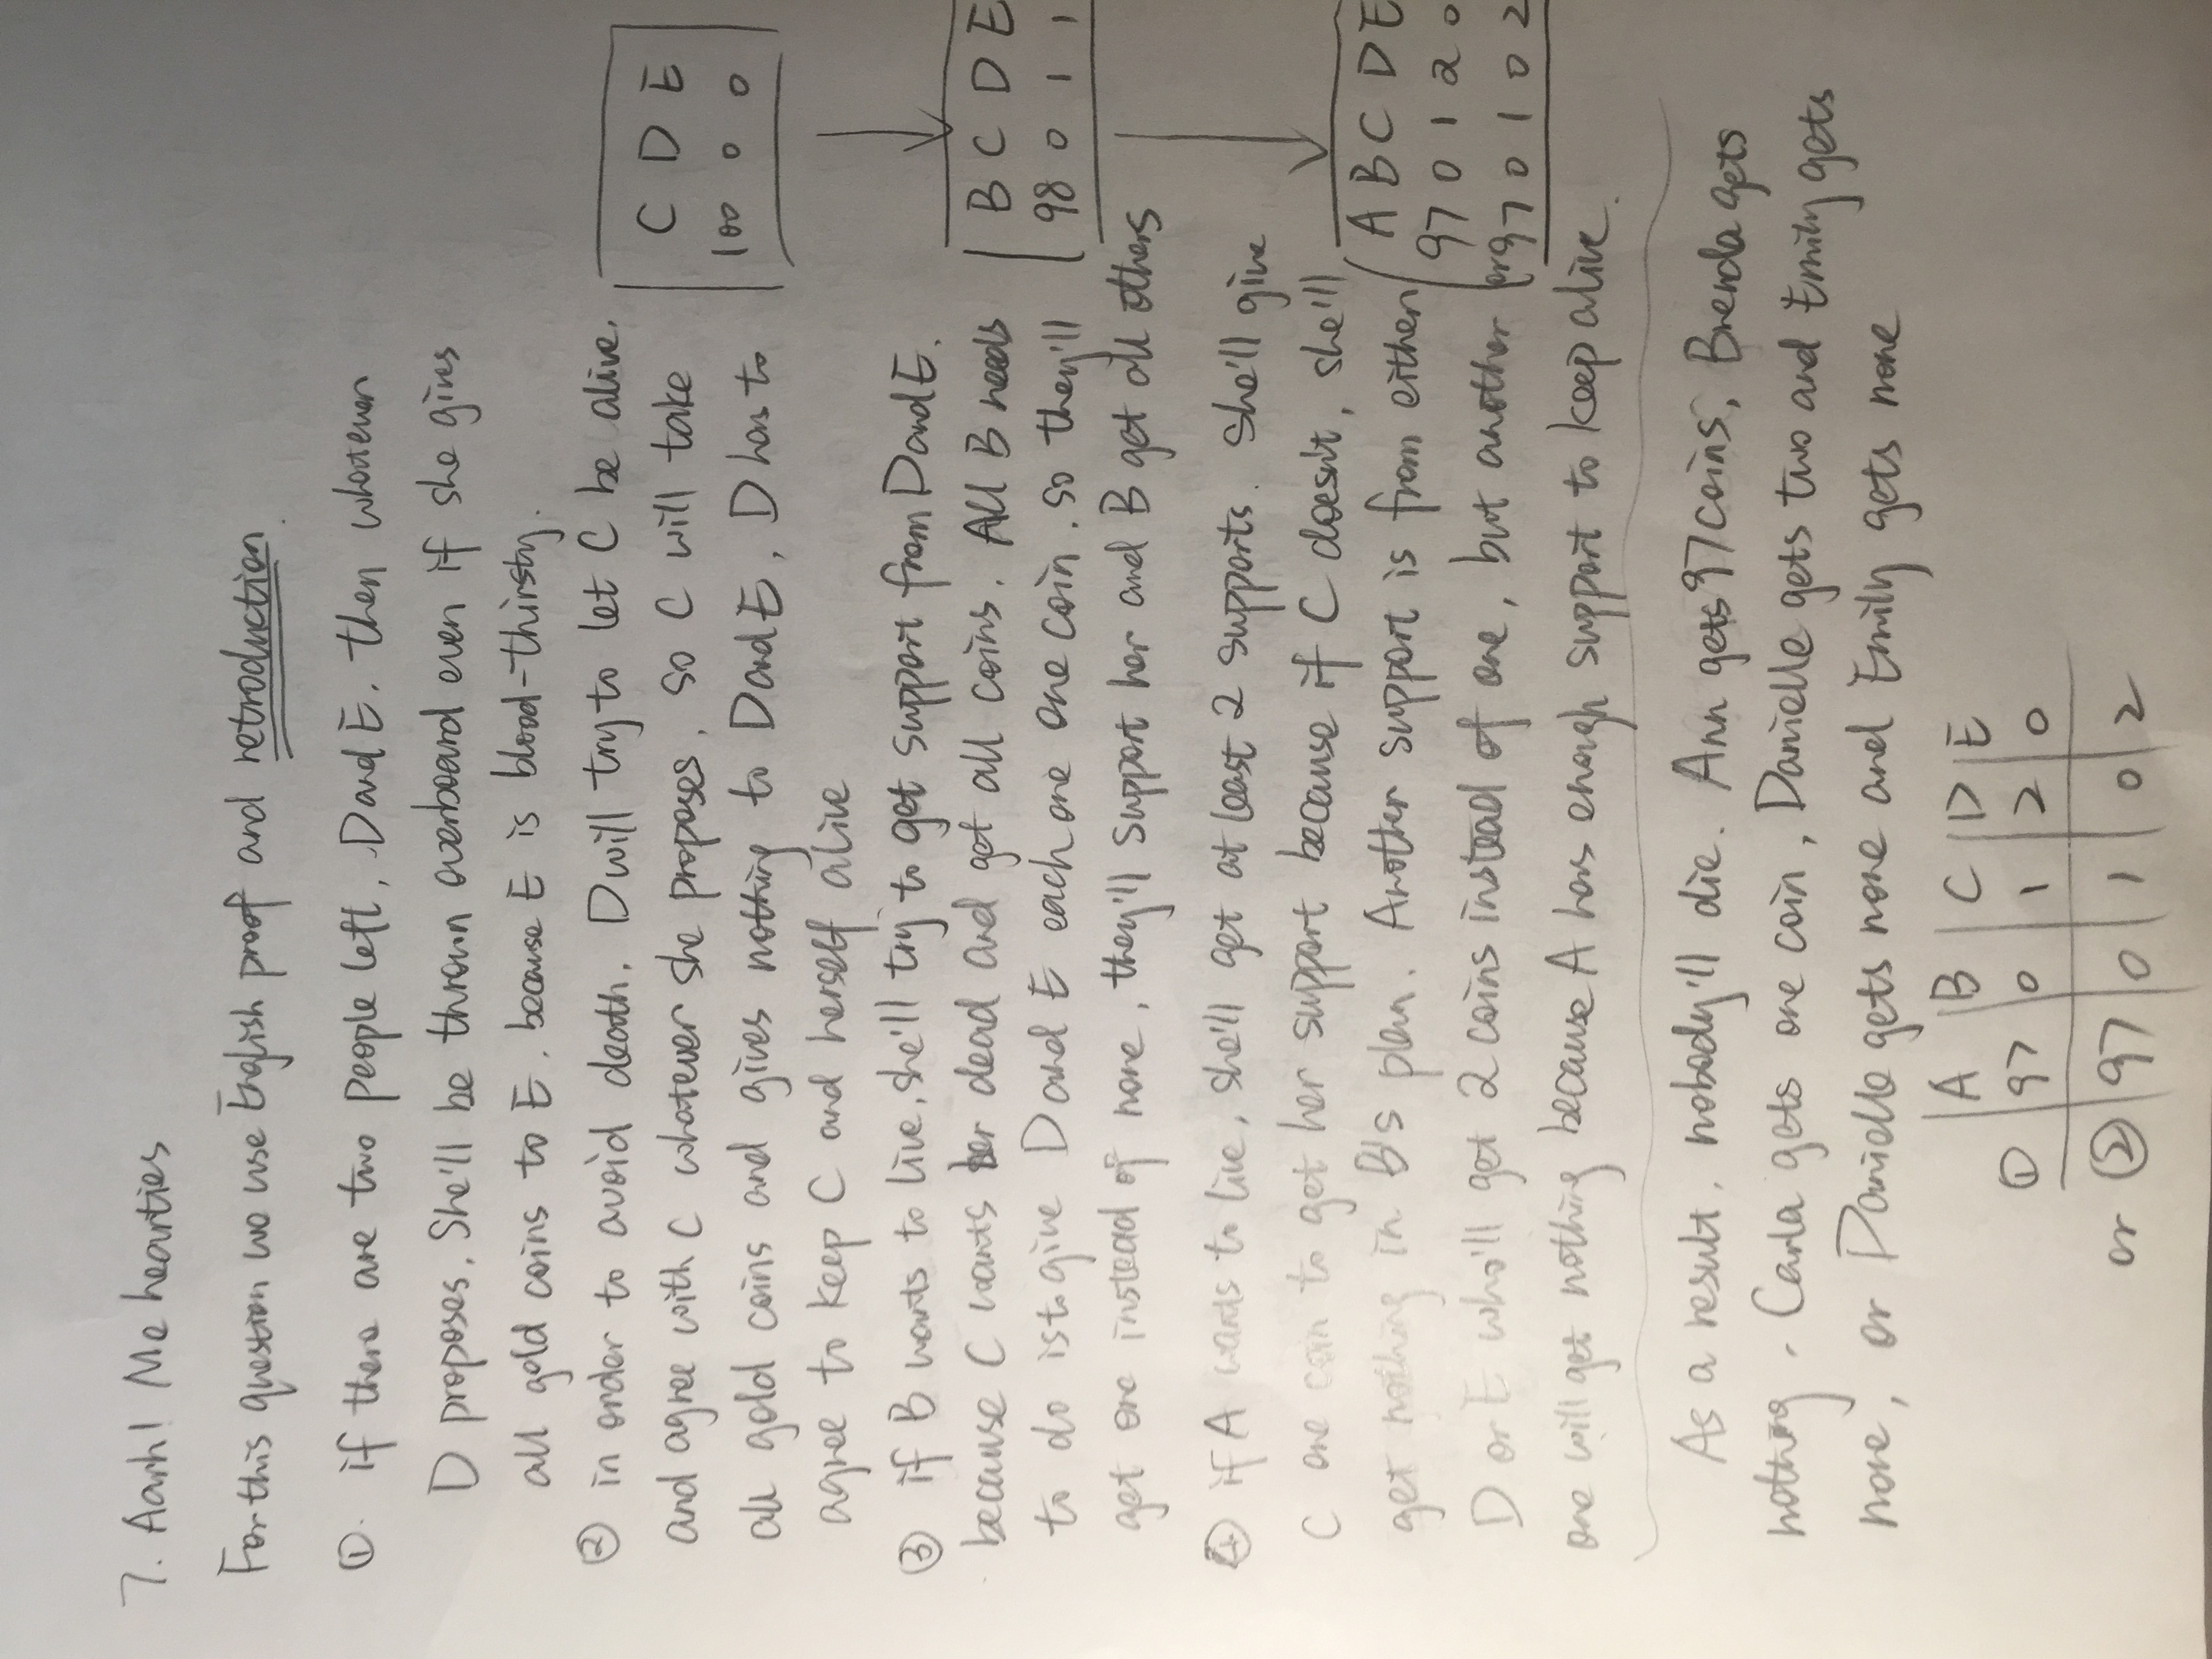 7. Aarh! Me hearties
For this question we use English proof and retroduction.
①. if there are two people left, D and E. then whatever
D proposes, She'll be thrown overboard even if she gives
all gold coins to E, because E is blood-thirsty.
② in order to avoid death, D will try to let C be alive.
and agree with C whatever she proposes, so C will take
all gold coins and gives nothing to D and E, D has to
agree to keep C and herself alive
C D E
100 0 0
③ if B wants to live, she'll try to get support from D and E.
because C wants her dead and get all coins. All B needs
to do is to give D and E each one one coin. so they'll
get one instead of none, they'll support her and B get all others
B C D E
98 0 1 1
④ if A wants to live, she'll get at least 2 supports. She'll give
C one coin to get her support because if C doesn't, she'll
get nothing in B's plan. Another support is from either
D or E who'll get 2 coins instead of one, but another
one will get nothing because A has enough support to keep alive.
A B C D E
97 0 1 2 0
or 97 0 1 0 2
As a result, nobody'll die. Ann gets 97 coins, Brenda gets
nothing, Carla gets one coin, Danielle gets two and Emily gets
none, or Danielle gets none and Emily gets none
A B C D E
① 97 0 1 2 0
or ② 97 0 1 0 2